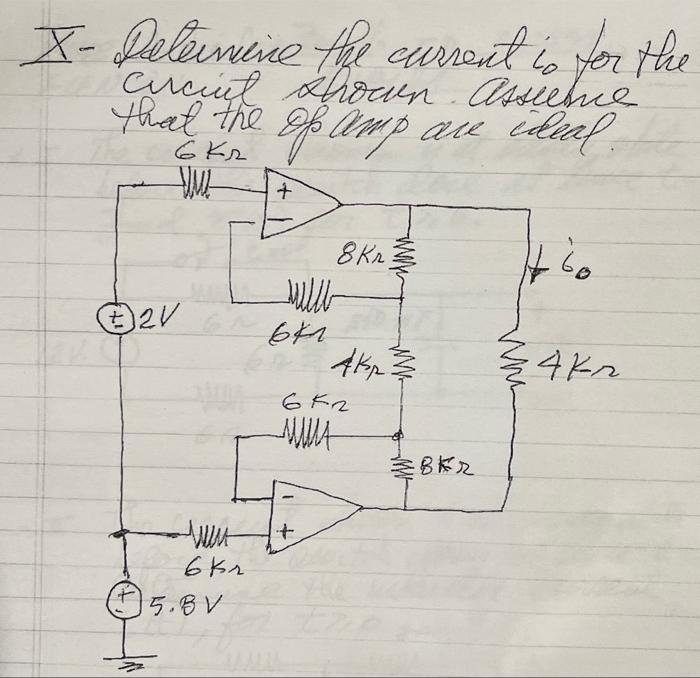 X- Determine the current i₀ for the
circuit shown. Assume
that the op amp are ideal.
6KΩ
+
-
8KΩ
i₀
+
-
2V
6KΩ
4KΩ
4KΩ
6KΩ
8KΩ
-
+
6KΩ
+
-
5.8V